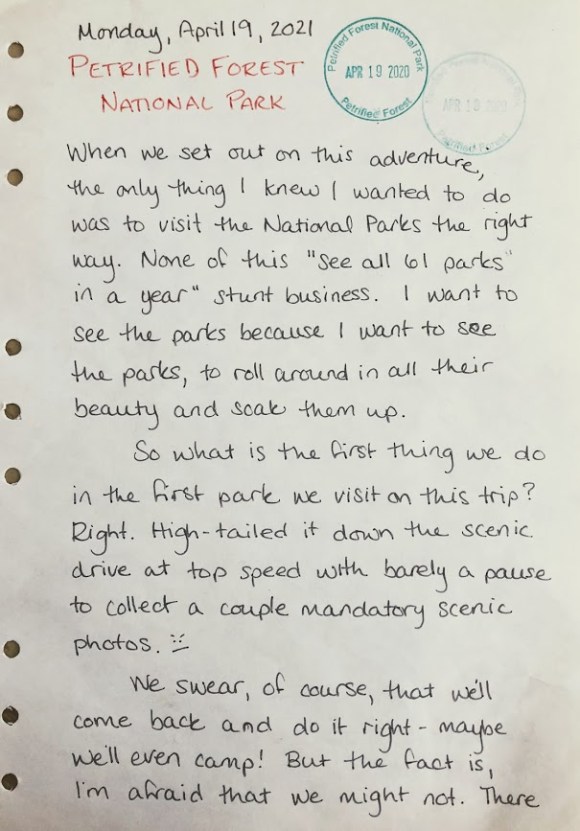 Monday, April 19, 2021
Petrified Forest National Park
APR 19 2020
Petrified Forest
PETRIFIED FOREST
NATIONAL PARK
APR 19
Petrified Forest
When we set out on this adventure,
the only thing I knew I wanted to do
was to visit the National Parks the right
way. None of this "see all 61 parks"
in a year" stunt business. I want to
see the parks because I want to see
the parks, to roll around in all their
beauty and soak them up.
So what is the first thing we do
in the first park we visit on this trip?
Right. High-tailed it down the scenic
drive at top speed with barely a pause
to collect a couple mandatory scenic
photos.
We swear, of course, that we'll
come back and do it right - maybe
we'll even camp! But the fact is,
I'm afraid that we might not. There